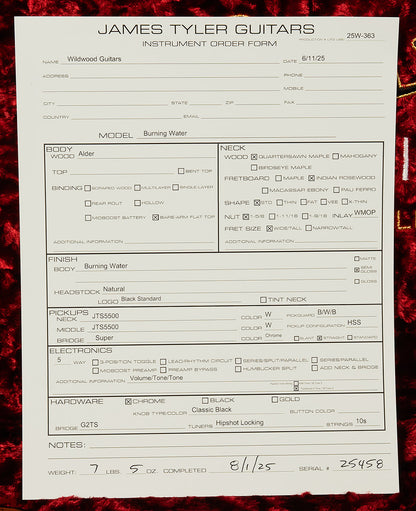 JAMES TYLER GUITARS
INSTRUMENT ORDER FORM
25W-363
NAME Wildwood Guitars DATE 6/11/25
ADDRESS PHONE
MOBILE
CITY STATE ZIP FAX
COUNTRY EMAIL
MODEL Burning Water
BODY NECK
WOOD Alder WOOD ☒ QUARTERSAWN MAPLE ☐ MAHOGANY
☐ BIRDSEYE MAPLE
TOP ☐ BENT TOP FRETBOARD ☐ MAPLE ☒ INDIAN ROSEWOOD
☐ MACASSAR EBONY ☐ PAU FERRO
BINDING ☐ SCRAPED WOOD ☐ MULTILAYER ☐ SINGLE LAYER
☐ REAR ROUT ☐ HOLLOW SHAPE ☒ STD ☐ THIN ☐ FAT ☐ VEE ☐ X-THIN
☐ MIDBOOST BATTERY ☒ BARE-ARM FLAT TOP NUT ☒ 1-5/8 ☐ 1-11/16 ☐ 1-9/16 INLAY WMOP
FRET SIZE ☒ WIDE/TALL ☐ NARROW/TALL
ADDITIONAL INFORMATION ADDITIONAL INFORMATION
FINISH ☐ MATTE
BODY Burning Water ☒ SEMI GLOSS
☐ GLOSS
HEADSTOCK Natural
LOGO Black Standard ☐ TINT NECK
PICKUPS
NECK JTS5500 COLOR W PICKGUARD B/W/B
MIDDLE JTS5500 COLOR W PICKUP CONFIGURATION HSS
BRIDGE Super COLOR Chrome ☐ SLANT ☒ STRAIGHT ☐ STANDARD
ELECTRONICS
5 WAY ☐ 3-POSITION TOGGLE ☐ LEAD/RHYTHM CIRCUIT ☐ SERIES/SPLIT/PARALLEL ☐ SERIES/PARALLEL
☐ MIDBOOST PREAMP ☐ PREAMP BYPASS ☐ HUMBUCKER SPLIT ☐ ADD NECK & BRIDGE
ADDITIONAL INFORMATION Volume/Tone/Tone
HARDWARE ☒ CHROME ☐ BLACK ☐ GOLD
KNOB TYPE/COLOR Classic Black BUTTON COLOR
BRIDGE G2TS TUNERS Hipshot Locking STRINGS 10s
NOTES:
WEIGHT: 7 LBS. 5 OZ. COMPLETED 8/1/25 SERIAL # 25458